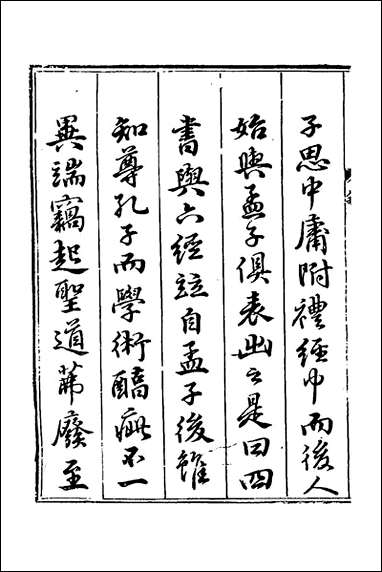 子思中庸附禮經中而後人
始與孟子俱表出之是曰四
書與六經竝自孟子後雖
知尊孔子而學術醨疵不一
異端竊起聖道茀廢至